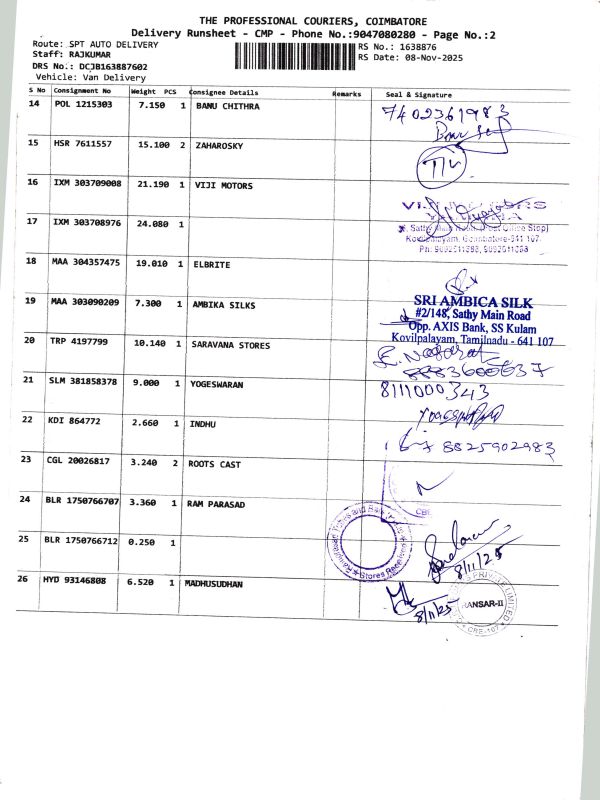 THE PROFESSIONAL COURIERS, COIMBATORE
Delivery Runsheet - CMP - Phone No.:9047080280 - Page No.:2
Route: SPT AUTO DELIVERY
RS No.: 1638876
Staff: RAJKUMAR
RS Date: 08-Nov-2025
DRS No.: DCJB163887602
Vehicle: Van Delivery
S No Consignment No Weight PCS Consignee Details Remarks Seal & Signature
14 POL 1215303 7.150 1 BANU CHITHRA
7402361983
15 HSR 7611557 15.100 2 ZAHAROSKY
16 IXM 303709008 21.190 1 VIJI MOTORS
17 IXM 303708976 24.080 1
Kovilpalayam, Coimbatore-641 107.
18 MAA 304357475 19.010 1 ELBRITE
19 MAA 303090209 7.300 1 AMBIKA SILKS
SRI AMBICA SILK
#2/148, Sathy Main Road
Opp. AXIS Bank, SS Kulam
Kovilpalayam, Tamilnadu - 641 107
20 TRP 4197799 10.140 1 SARAVANA STORES
21 SLM 381858378 9.000 1 YOGESWARAN
8111000343
22 KDI 864772 2.660 1 INDHU
8825902983
23 CGL 20026817 3.240 2 ROOTS CAST
24 BLR 1750766707 3.360 1 RAM PARASAD
25 BLR 1750766712 0.250 1
8/11/25
26 HYD 93146808 6.520 1 MADHUSUDHAN
8/11/25
PRIVATE LIMITED
RANSAR-II
CBE-107